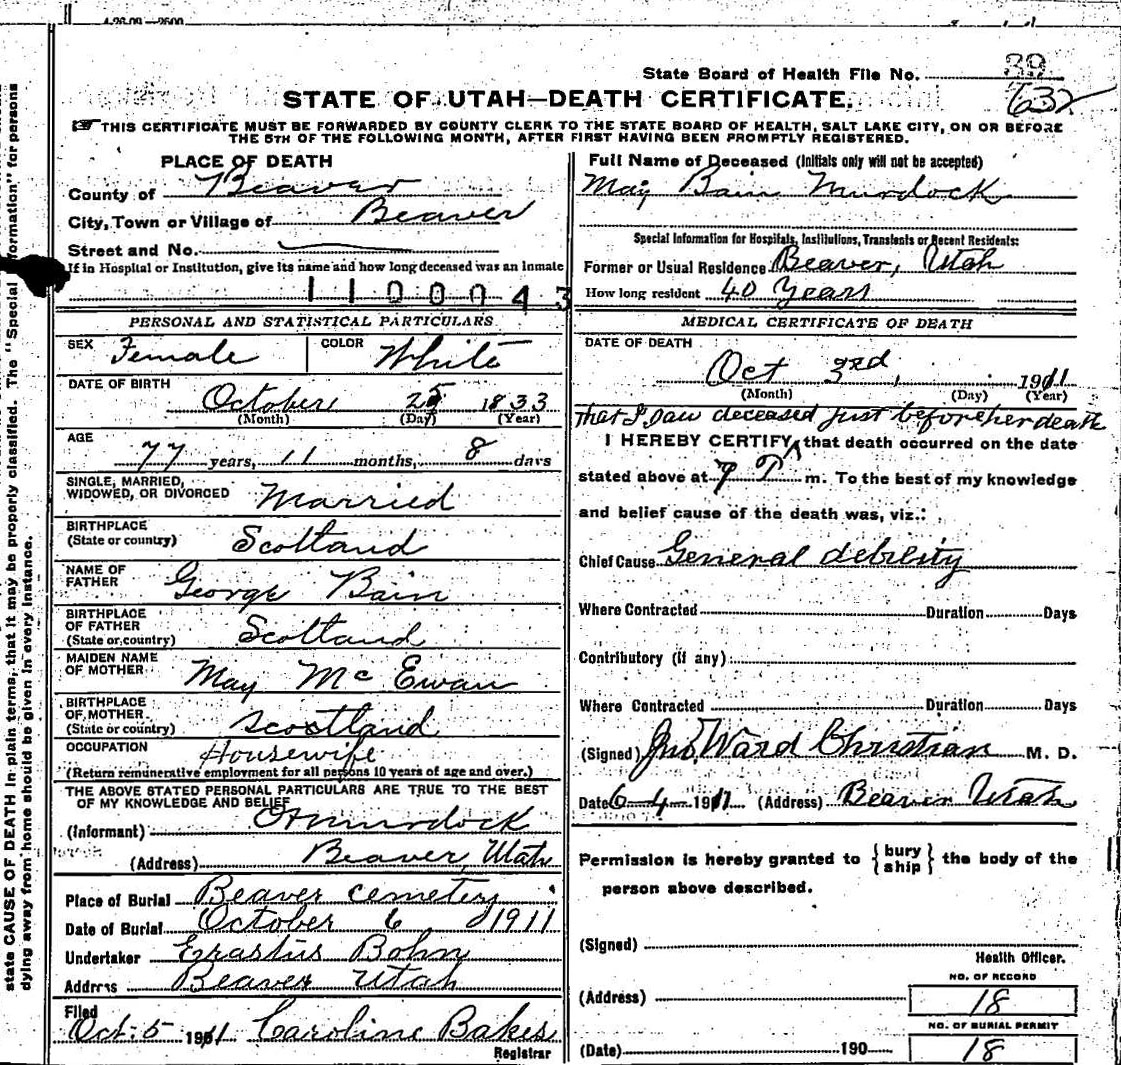 4-26-09—2500
State Board of Health File No. 39
632
STATE OF UTAH—DEATH CERTIFICATE.
THIS CERTIFICATE MUST BE FORWARDED BY COUNTY CLERK TO THE STATE BOARD OF HEALTH, SALT LAKE CITY, ON OR BEFORE
THE 5TH OF THE FOLLOWING MONTH, AFTER FIRST HAVING BEEN PROMPTLY REGISTERED.
PLACE OF DEATH
County of Beaver
City, Town or Village of Beaver
Street and No.
If in Hospital or Institution, give its name and how long deceased was an inmate
1100043
PERSONAL AND STATISTICAL PARTICULARS
SEX Female COLOR White
DATE OF BIRTH
October 25 1833
(Month) (Day) (Year)
AGE
77 years, 11 months, 8 days
SINGLE, MARRIED,
WIDOWED, OR DIVORCED Married
BIRTHPLACE
(State or country) Scotland
NAME OF
FATHER George Bain
BIRTHPLACE
OF FATHER
(State or country) Scotland
MAIDEN NAME
OF MOTHER May McEwan
BIRTHPLACE
OF MOTHER
(State or country) Scootland
OCCUPATION Housewife
(Return remunerative employment for all persons 10 years of age and over.)
THE ABOVE STATED PERSONAL PARTICULARS ARE TRUE TO THE BEST
OF MY KNOWLEDGE AND BELIEF
(Informant) Murdock
(Address) Beaver, Utah
Place of Burial Beaver cemetery
Date of Burial October 6 1911
Undertaker Erastus Bohn
Address Beaver Utah
Filed
Oct. 5 1911 Caroline Bakes
Registrar
Full Name of Deceased (Initials only will not be accepted)
May Bain Murdock
Special Information for Hospitals, Institutions, Transients or Recent Residents:
Former or Usual Residence Beaver, Utah
How long resident 40 Years
MEDICAL CERTIFICATE OF DEATH
DATE OF DEATH
Oct 3rd, 1911
(Month) (Day) (Year)
that I saw deceased just before her death
I HEREBY CERTIFY, that death occurred on the date
stated above at 7 P m. To the best of my knowledge
and belief cause of the death was, viz.:
Chief Cause General debility
Where Contracted Duration Days
Contributory (if any)
Where Contracted Duration Days
(Signed) Jno. Ward Christian M. D.
Date 6-4-1911. (Address) Beaver Utah
Permission is hereby granted to {bury
ship} the body of the
person above described.
(Signed)
Health Officer.
(Address)
NO. OF RECORD
18
NO. OF BURIAL PERMIT
(Date) 190 18
state CAUSE OF DEATH in plain terms, that it may be properly classified. The "Special Information" for persons
dying away from home should be given in every instance.